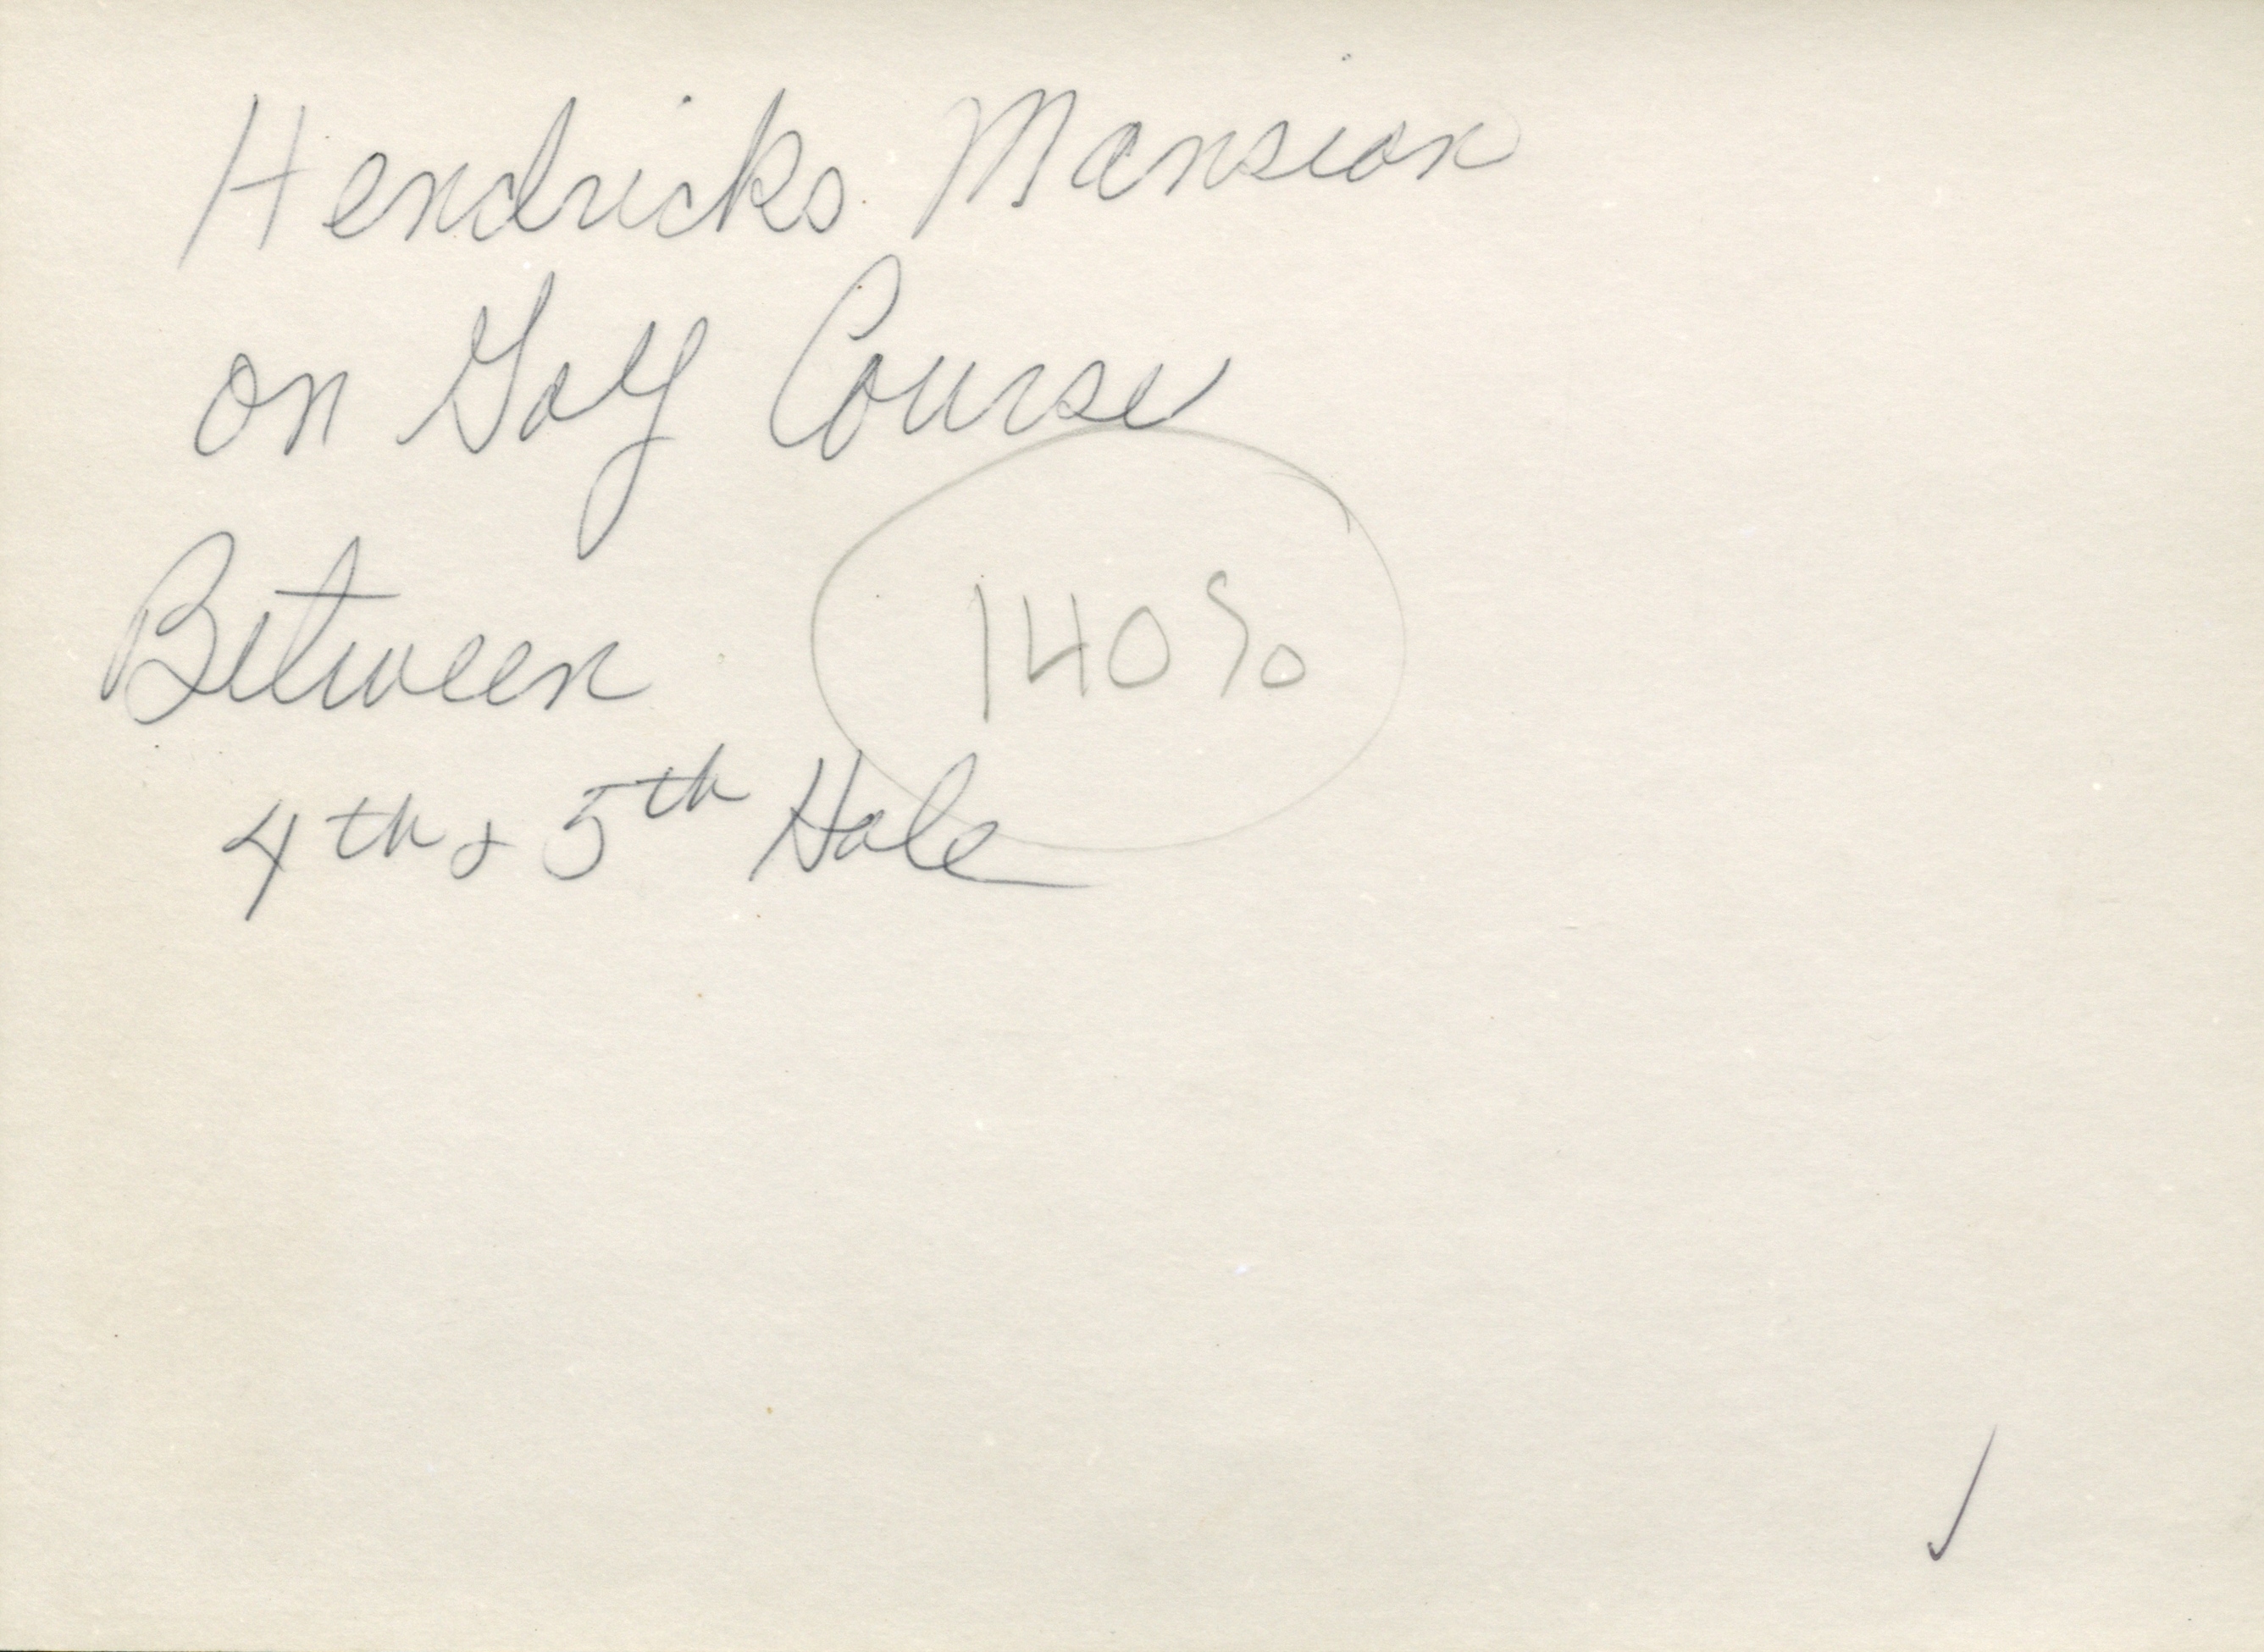 Hendricks Mansion
on Golf Course
Between
140%
4th & 5th Hole